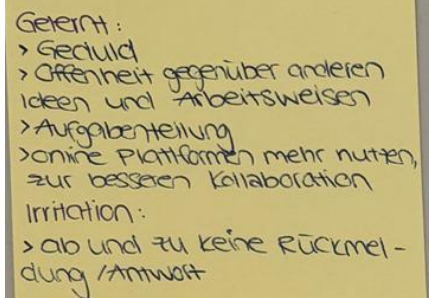 Gelernt:
> Geduld
> Offenheit gegenüber anderen
Ideen und Arbeitsweisen
> Aufgabenteilung
> online Plattformen mehr nutzen,
zur besseren Kollaboration
Irritation:
> ab und zu keine Rückmel-
dung /Antwort